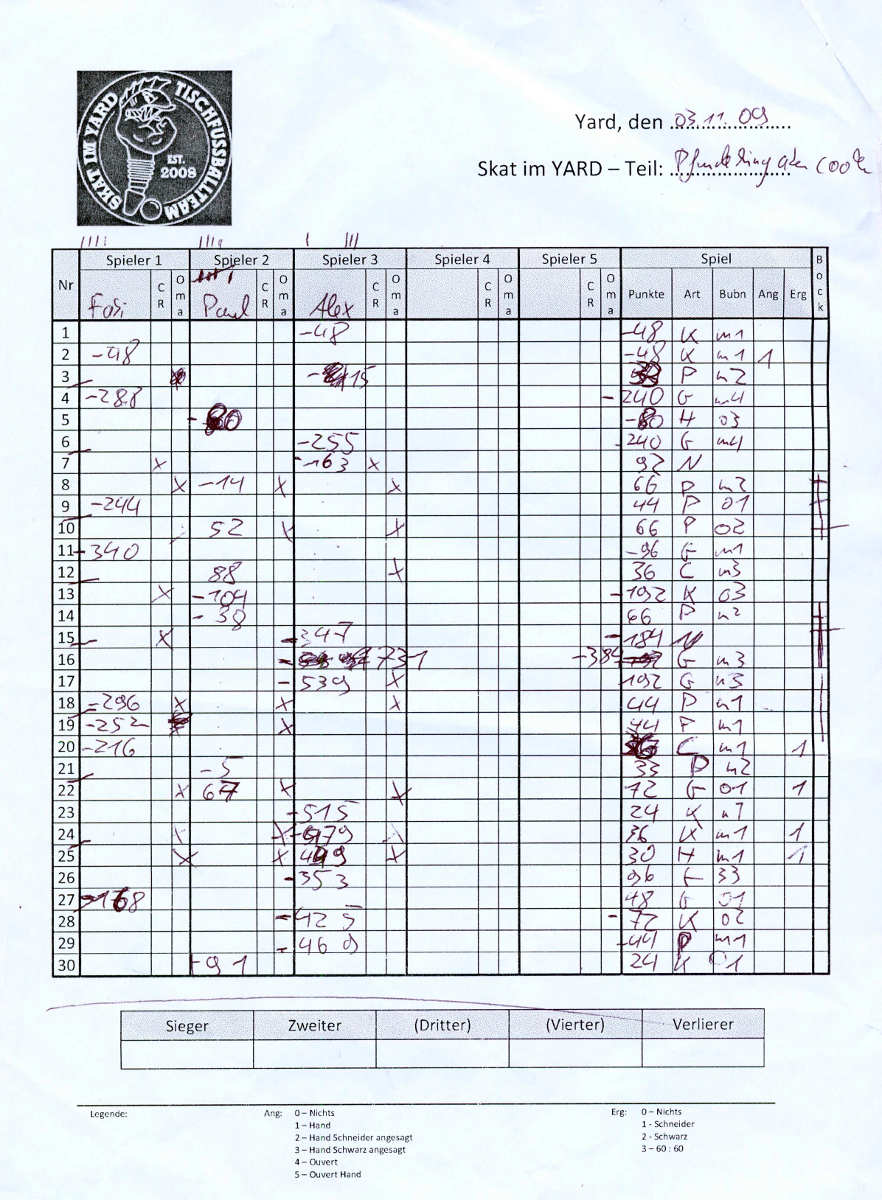 SKAT IM YARD TISCHFUSSBALLTEAM
EST. 2008
Yard, den 03.11.09
Skat im YARD – Teil:
Nr Spieler 1 Spieler 2 Spieler 3 Spieler 4 Spieler 5 Spiel Bock
Fasi CR Oma Paul CR Oma Alex CR Oma CR Oma CR Oma Punkte Art Bubn Ang Erg
1 -48 -48 K m1
2 -48 -48 K m1 1
3 P m2
4 -288 -240 G m4
5 - 80 -80 H 03
6 -255 -240 G m4
7 x -163 x 92 N
8 x -14 x x 66 P m2
9 -244 44 P 01
10 52 x x 66 P 02
11 -340 -96 G m1
12 88 x 36 C m3
13 x -104 -192 K 03
14 -38 66 P m2
15 x -347 -184 N
16 - 731 -384 G m3
17 -539 x 192 G m3
18 -296 x x x 44 P m1
19 -252 x x 44 P m1
20 -216 C m1 1
21 -5 33 P m2
22 x 67 x x 72 G 01 1
23 -515 24 K
24 x -479 36 K m1 1
25 x x x 30 H m1 1
26 -353 96 33
27 -168 48 G 01
28 -425 -72 K 02
29 -469 -44 P m1
30 -91 24 K 01
Sieger Zweiter (Dritter) (Vierter) Verlierer
Legende: Ang: 0 – Nichts Erg: 0 – Nichts
1 – Hand 1 - Schneider
2 – Hand Schneider angesagt 2 - Schwarz
3 – Hand Schwarz angesagt 3 – 60 : 60
4 – Ouvert
5 – Ouvert Hand